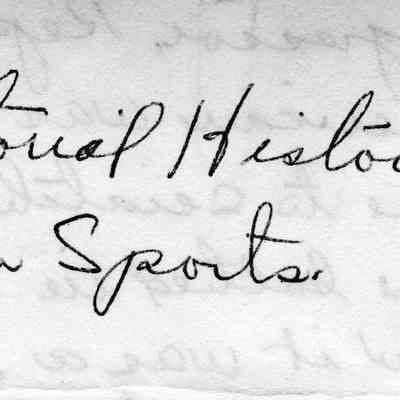 torial Histo
n Sports.